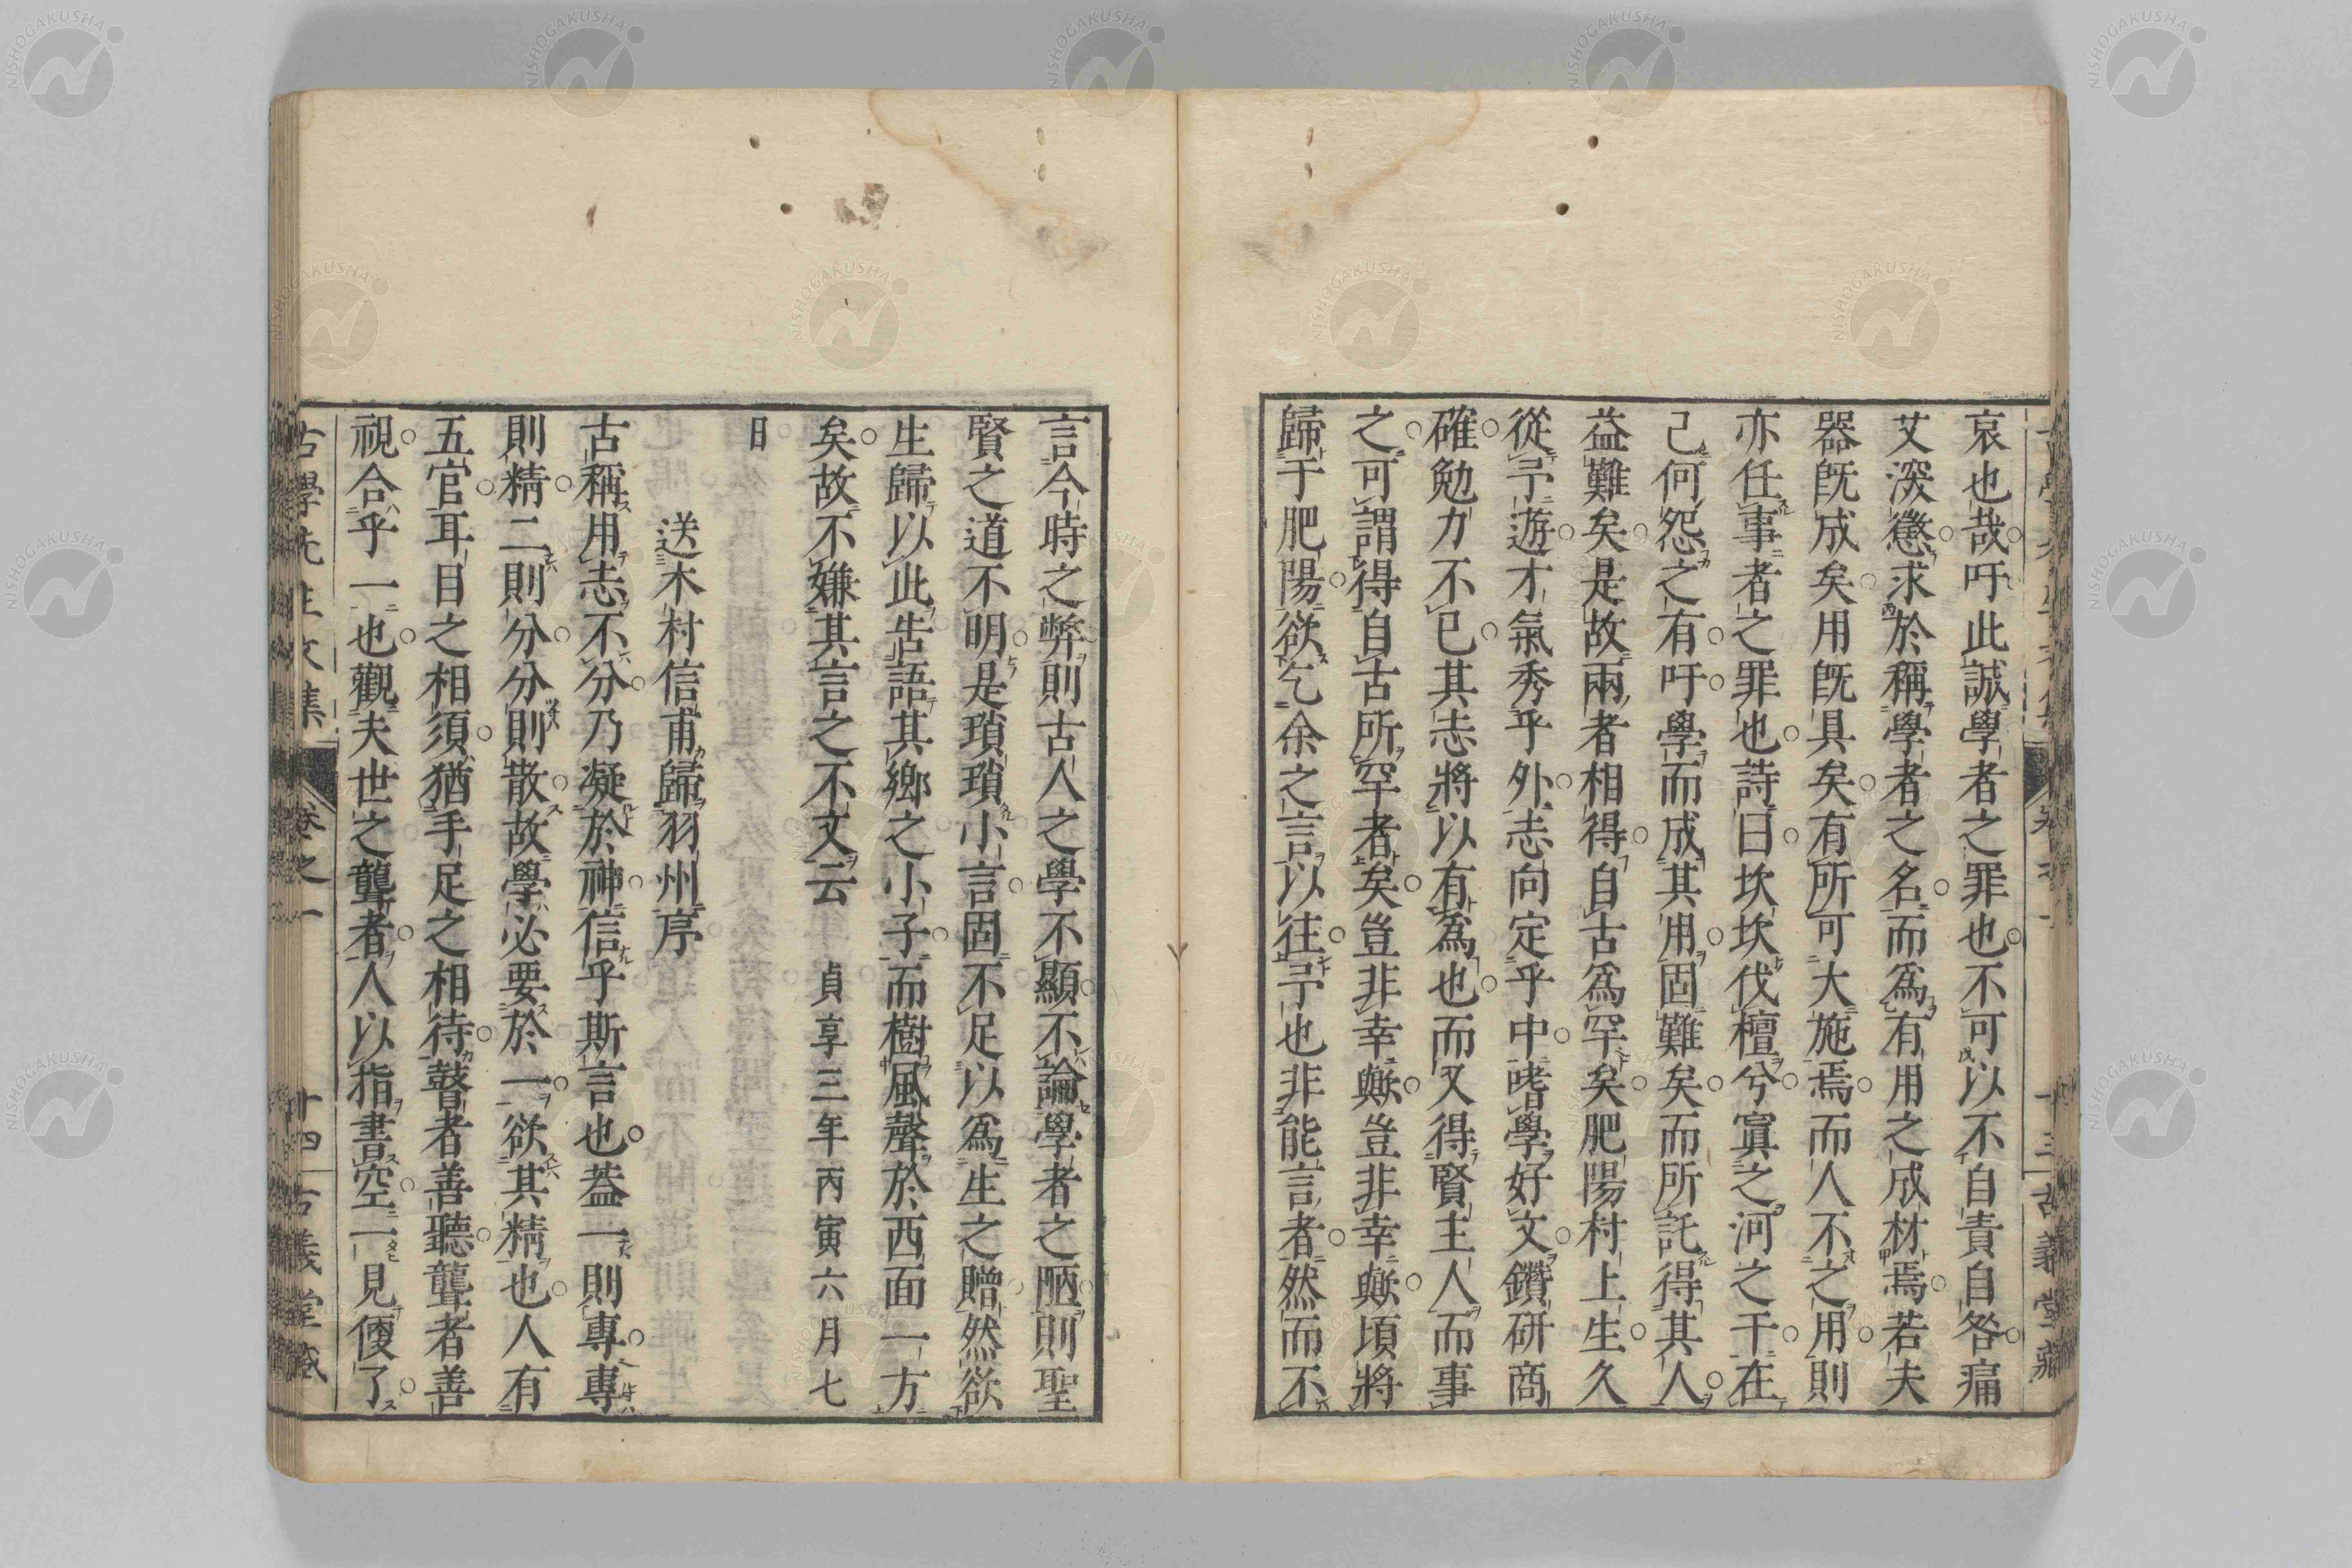 哀也哉吁此誠學者之罪也不可以不自責自咎痛
艾深懲求於稱學者之名而爲有用之成材焉若夫
器既成矣用既具矣有所可大施焉而人不之用則
亦任事者之罪也詩曰坎坎伐檀兮寘之河之干在
己何怨之有吁學而成其用固難矣而所託得其人
益難矣是故兩者相得自古爲罕矣肥陽村上生久
從予遊才氣秀乎外志向定乎中嗜學好文鑽研商
確勉力不已其志將以有爲也而又得賢主人而事
之可謂得自古所罕者矣豈非幸歟豈非幸歟頃將
歸于肥陽欲乞余之言以往予也非能言者然而不
言今時之弊則古人之學不顯不論學者之陋則聖
賢之道不明是瑣瑣小言固不足以爲生之贈然欲
生歸以此告語其鄉之小子而樹風聲於西面一方
矣故不嫌其言之不文云 貞享三年丙寅六月七
日
送木村信甫歸羽州序
古稱用志不分乃凝於神信乎斯言也蓋一則專專
則精二則分分則散故學必要於一欲其精也人有
五官耳目之相須猶手足之相待瞽者善聽聾者善
視合乎一也觀夫世之聾者人以指書空一見便了
古學先生文集 卷之一 十四 古義堂藏